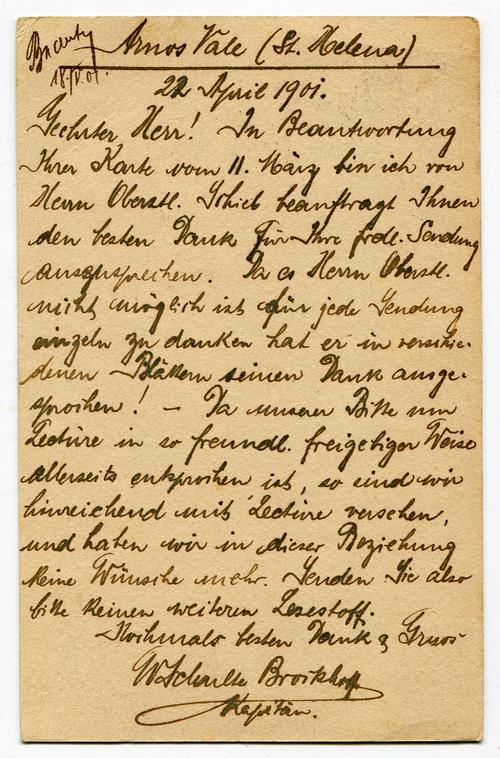 Arnos Vale (St. Helena)
18/V.01.
22 April 1901.
Geehrter Herr! In Beantwortung
Ihrer Karte vom 11. März bin ich von
Herrn Oberstl. Schiel beauftragt Ihnen
den besten Dank für Ihre frdl. Sendung
auszusprechen. Da es Herrn Oberstl.
nicht möglich ist für jede Sendung
einzeln zu danken hat er in verschie-
denen Blättern seinen Dank ausge-
sprochen! – Da unserer Bitte um
Lectüre in so freundl. freigebiger Weise
allerseits entsprochen ist, so sind wir
hinreichend mit Lectüre versehen,
und haben wir in dieser Beziehung
keine Wünsche mehr. Senden Sie also
bitte keinen weiteren Lesestoff.
Nochmals besten Dank & Gruss
W. Schulte Brockhoff
Kapitän.